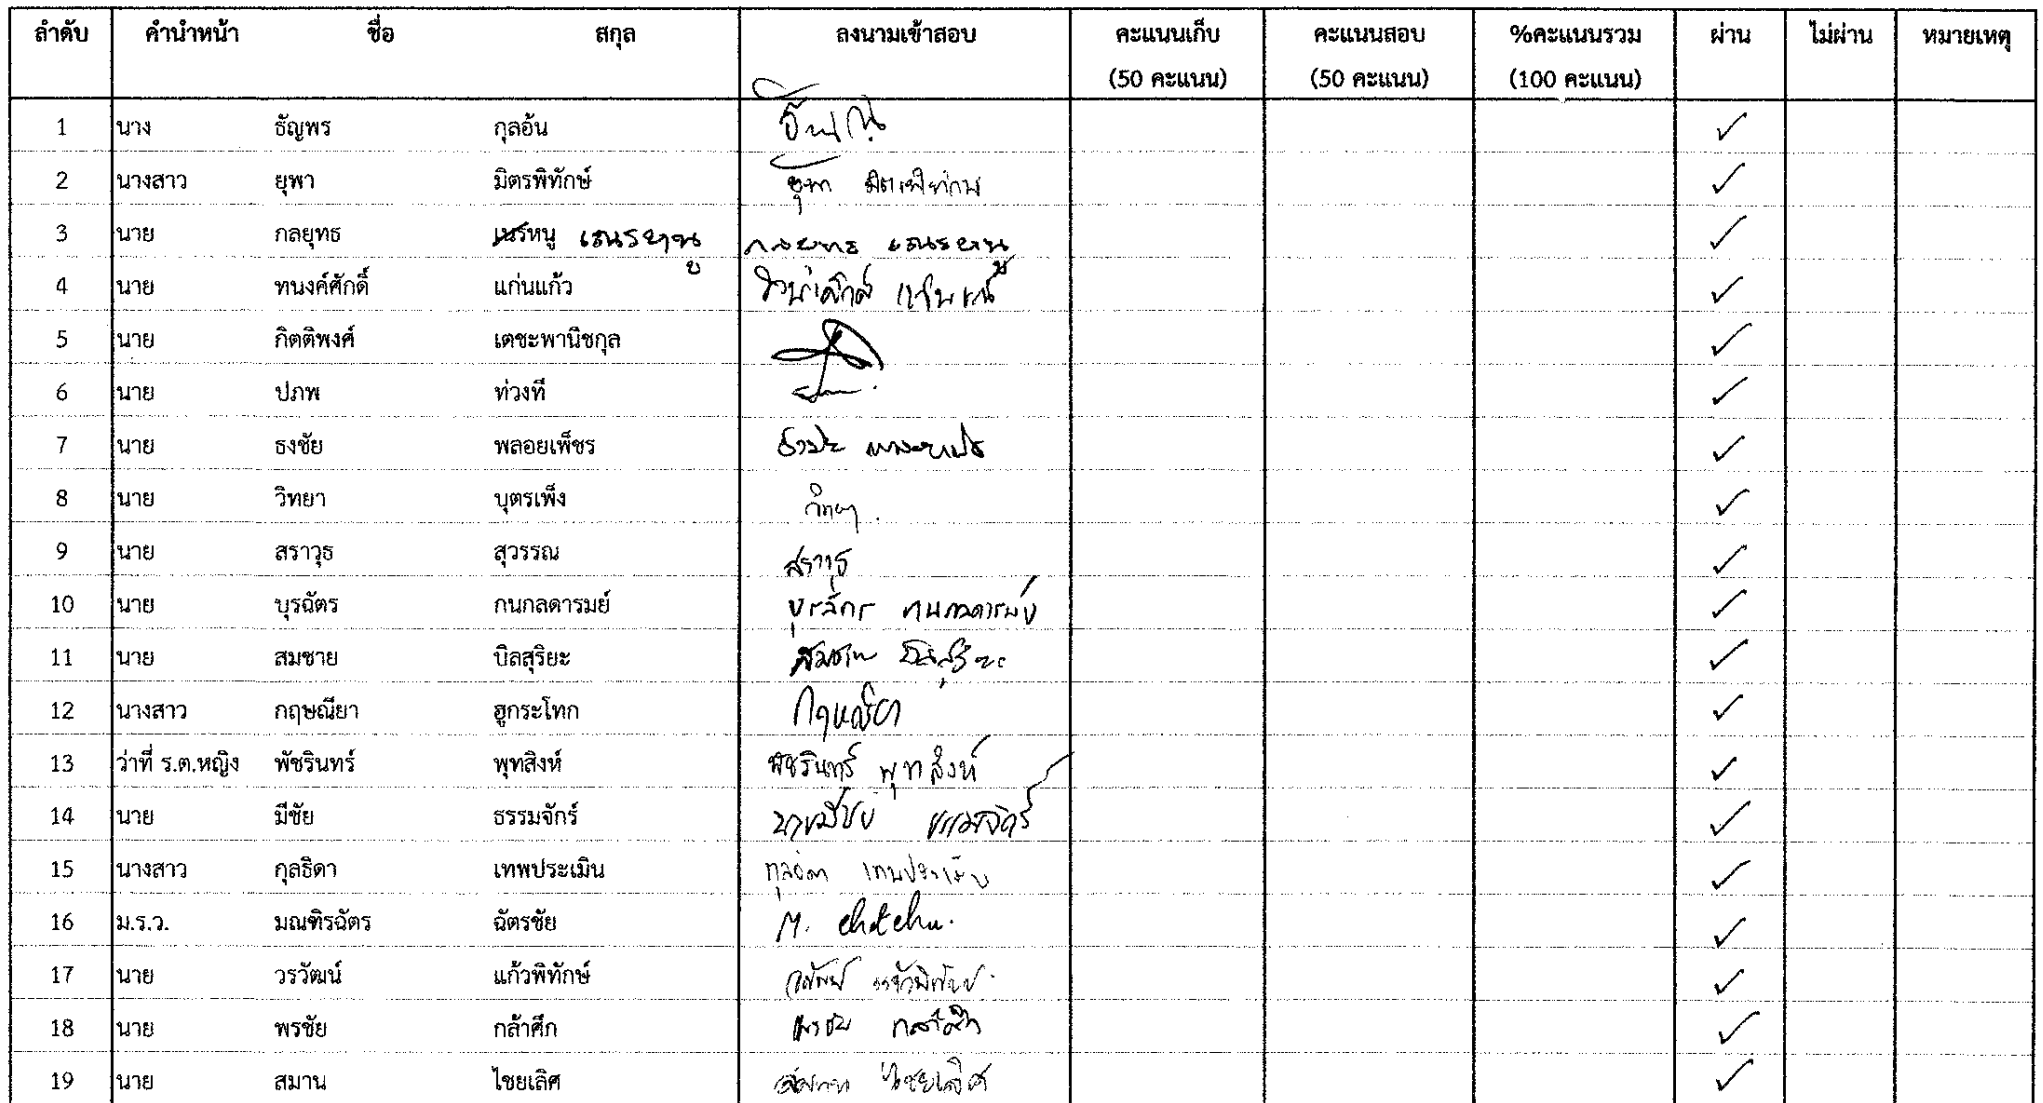 ลำดับ คำนำหน้า ชื่อ สกุล ลงนามเข้าสอบ คะแนนเก็บ คะแนนสอบ %คะแนนรวม ผ่าน ไม่ผ่าน หมายเหตุ
(50 คะแนน) (50 คะแนน) (100 คะแนน)
1 นาง ธัญพร กุลอ้น ✓
2 นางสาว ยุพา มิตรพิทักษ์ ยุพา มิตรพิทักษ์ ✓
3 นาย กลยุทธ เนร์หนู เณรหานู กลยุทธ เณรหานู ✓
4 นาย ทนงค์ศักดิ์ แก่นแก้ว ✓
5 นาย กิตติพงศ์ เตชะพานิชกุล ✓
6 นาย ปภพ ท่วงที ✓
7 นาย ธงชัย พลอยเพ็ชร ธงชัย พลอยเพ็ชร ✓
8 นาย วิทยา บุตรเพ็ง วิทยา ✓
9 นาย สราวุธ สุวรรณ สราวุธ ✓
10 นาย บุรฉัตร กนกลดารมย์ บุรฉัตร กนกลดารมย์ ✓
11 นาย สมชาย บิลสุริยะ สมชาย บิลสุริยะ ✓
12 นางสาว กฤษณียา ฮูกระโทก กฤษณียา ✓
13 ว่าที่ ร.ต.หญิง พัชรินทร์ พุทสิงห์ พัชรินทร์ พุทสิงห์ ✓
14 นาย มีชัย ธรรมจักร์ นายมีชัย ธรรมจักร์ ✓
15 นางสาว กุลธิดา เทพประเมิน กุลธิดา เทพประเมิน ✓
16 ม.ร.ว. มณฑิรฉัตร ฉัตรชัย M. ✓
17 นาย วรวัฒน์ แก้วพิทักษ์ ✓
18 นาย พรชัย กล้าศึก พรชัย กล้าศึก ✓
19 นาย สมาน ไชยเลิศ สมาน ไชยเลิศ ✓